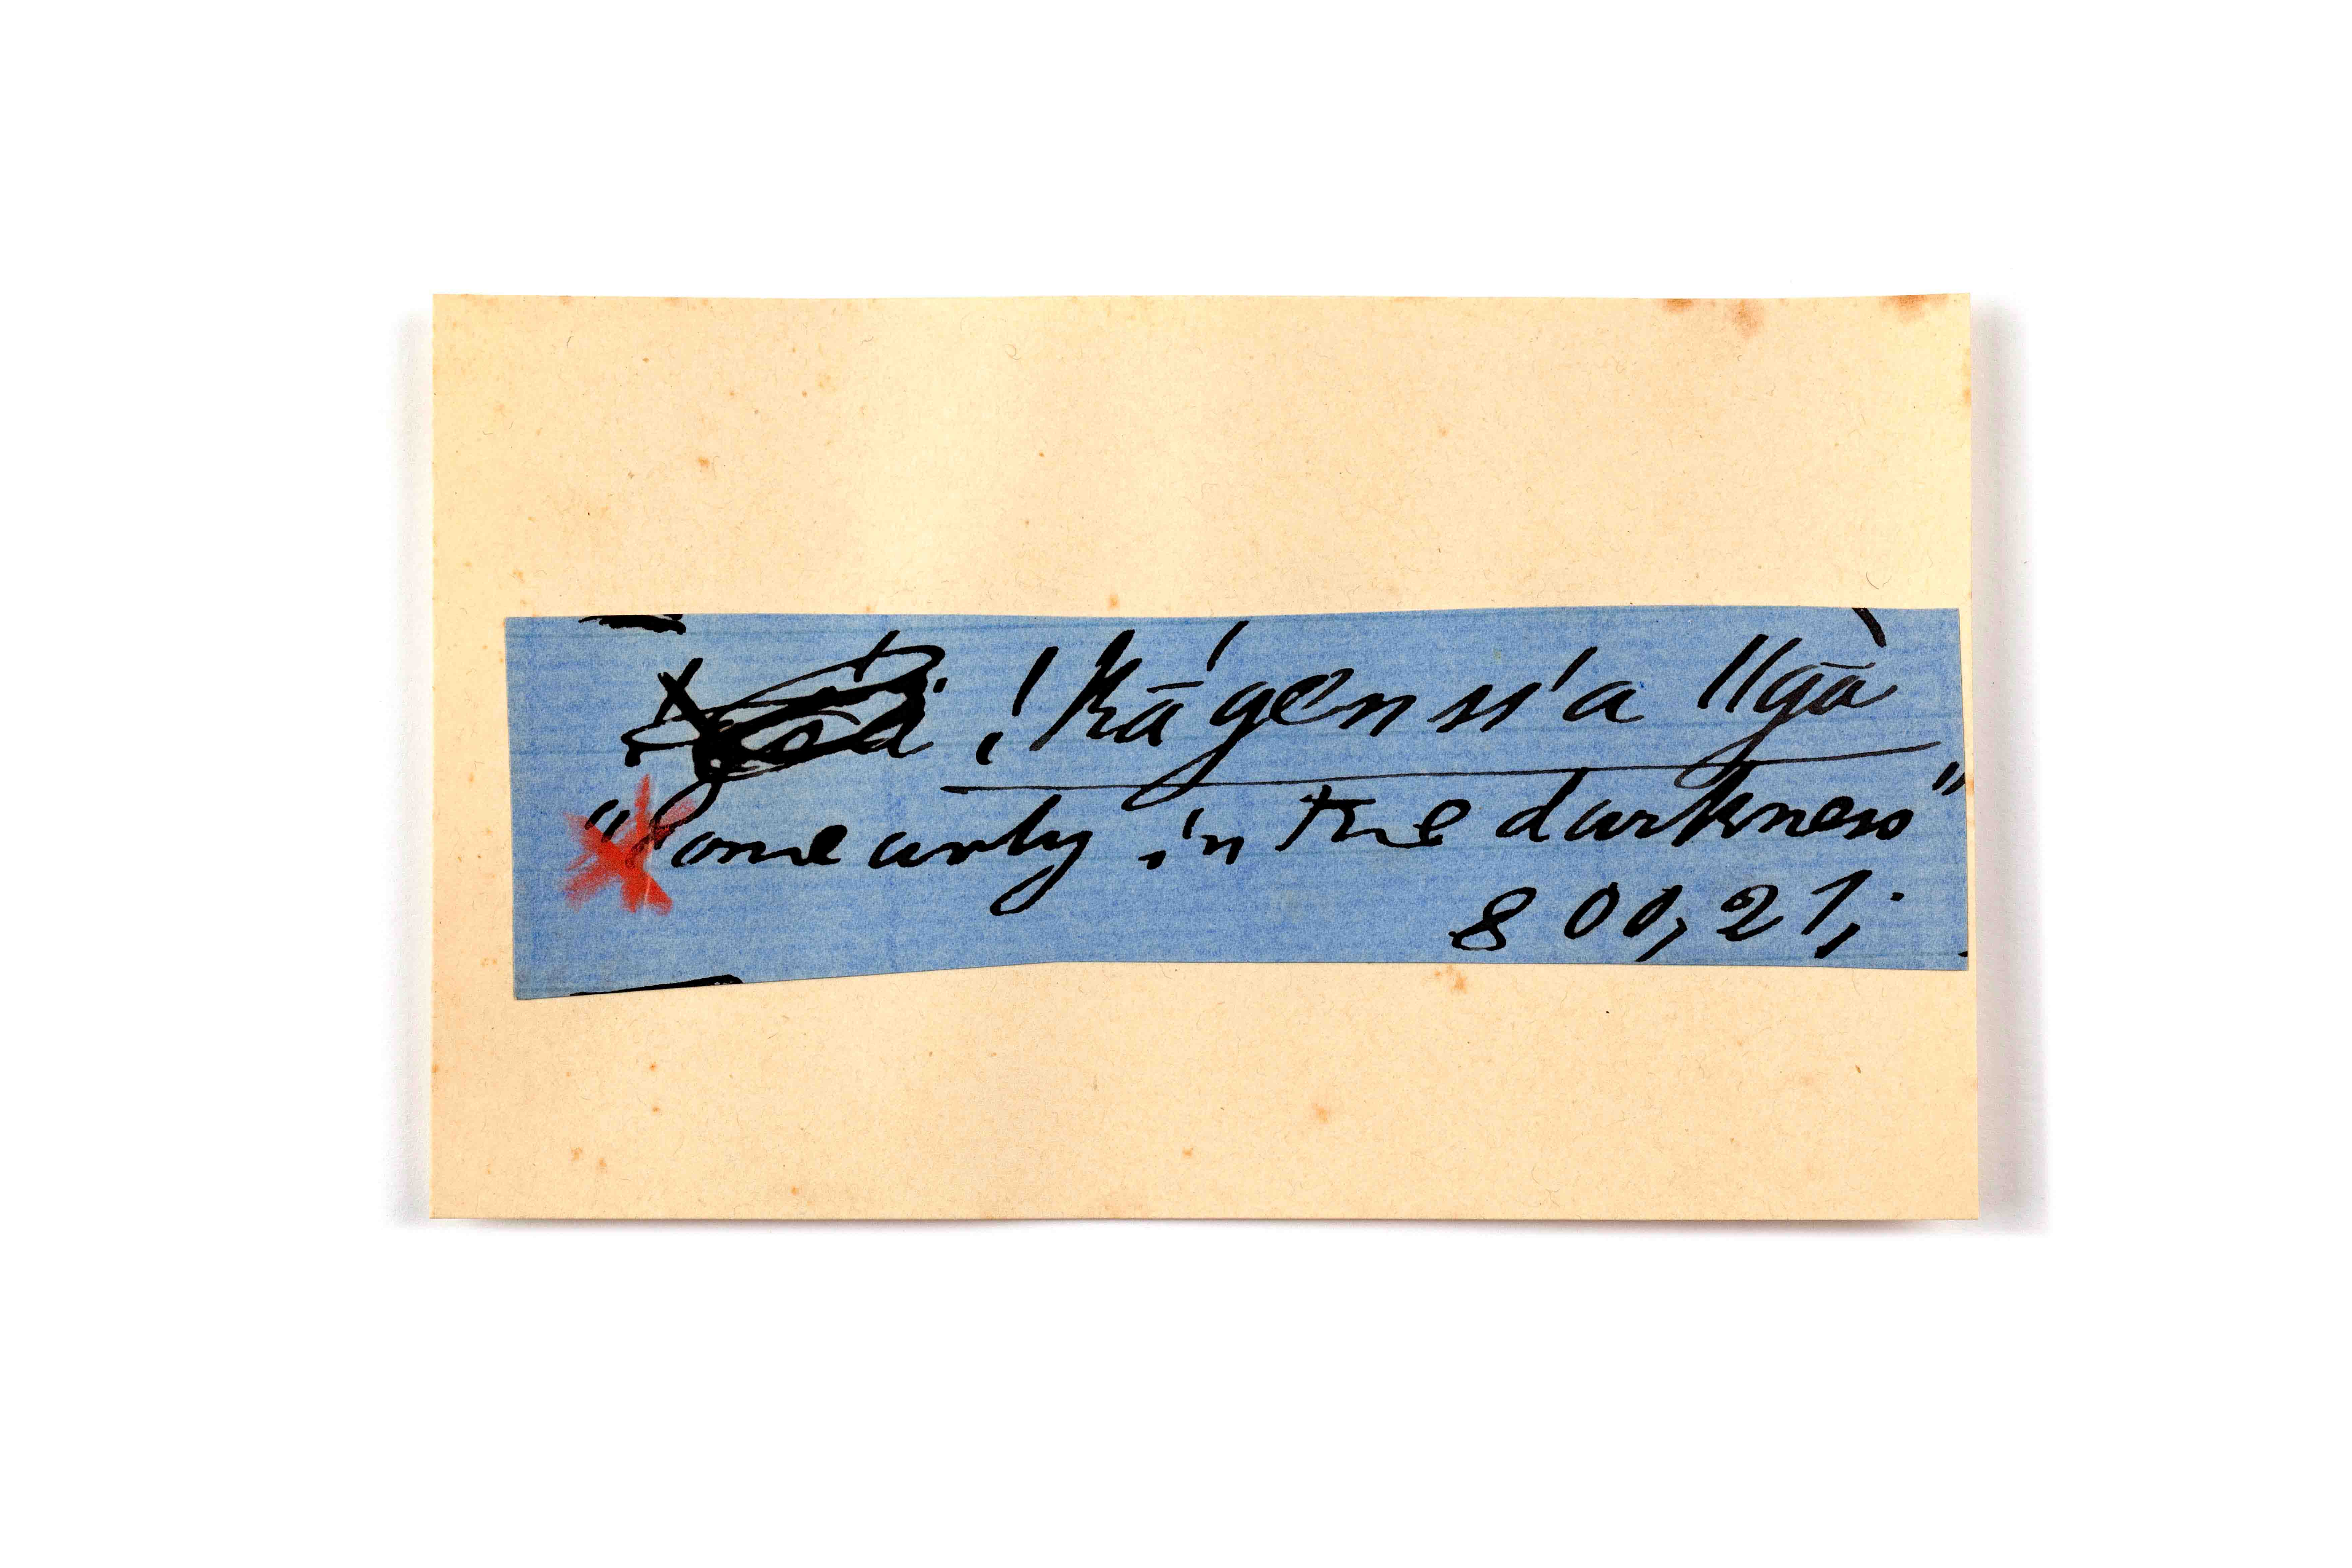 !kā́gen s̱ı'a ‖gā
"Come early in the darkness"
800, 21;